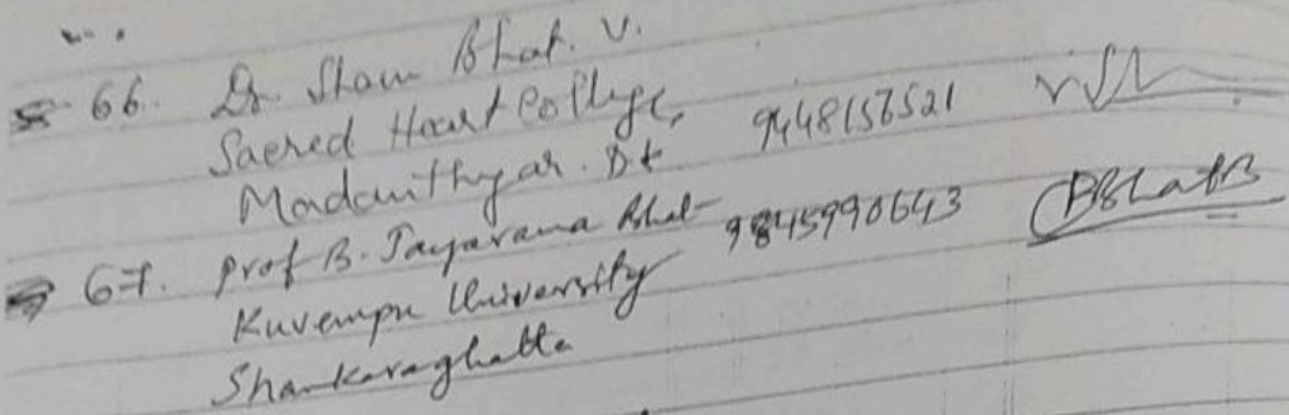 66. Dr. Sham Bhat. V.
Sacred Heart College, 9448157521
Madanthyar. Dk
67. Prof B. Jayarama Bhat 9845990643 BBhat
Kuvempu University
Shankaraghatta